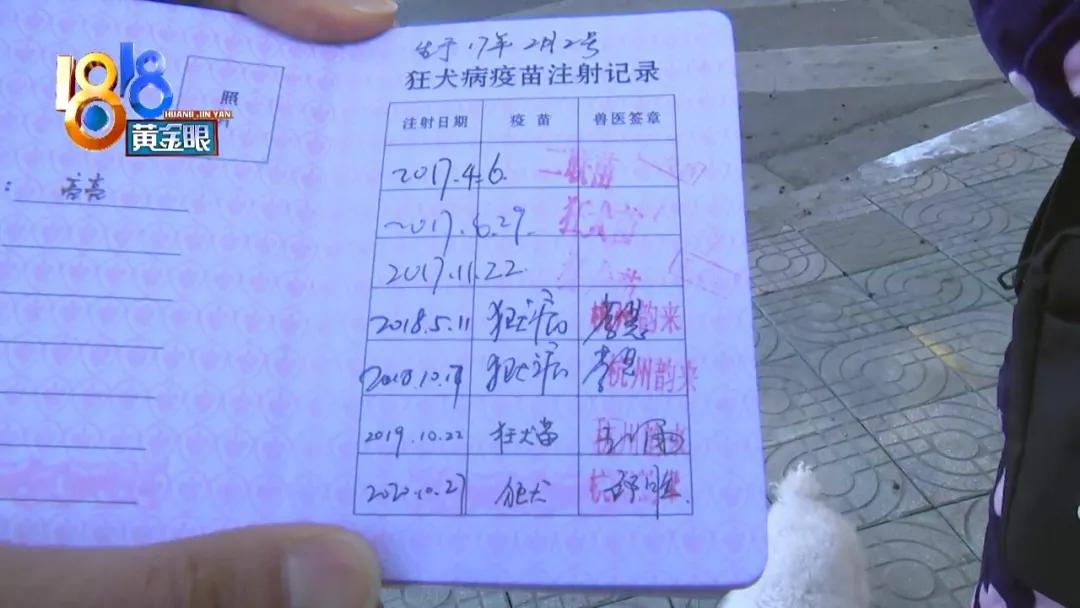 1818
HUANG JIN YAN
黄金眼
照
片
: 亮亮
生于17年2月2号
狂犬病疫苗注射记录
注射日期 疫苗 兽医签章
2017.4.6.
2017.6.29. 狂犬苗
2017.11.22.
2018.5.11 狂犬病 韵来
2018.10.17 狂犬病 杭州韵来
2019.10.22 狂犬苗 杭州
2020.10.27 狂犬